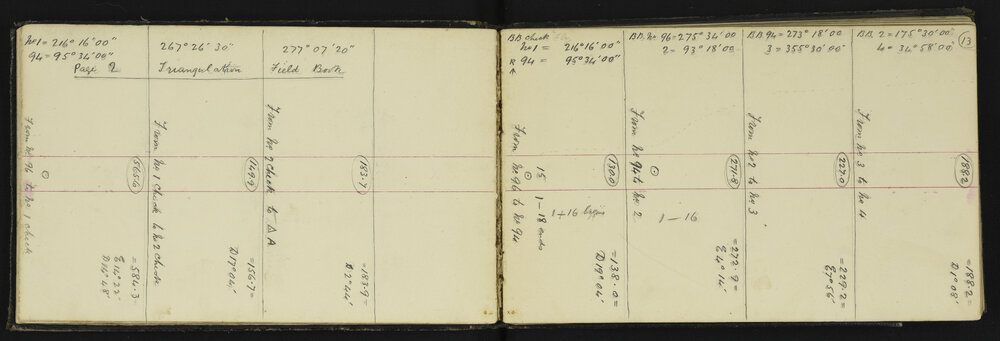 No 1 = 216° 16' 00"
94 = 95° 34' 00"
Page 2
267° 26' 30"
Triangulation
277° 07' 20"
Field Book
From No 96 to No 1 check
565.6
= 584.3 =
E 14° 22'
D 14° 48'
From No 1 check to No 2 check
149.9
= 156.7 =
D 17° 04'
From No 2 check to Δ A
183.7
= 183.9 =
D 2° 44'
13
BB check
No 1 = 216° 16' 00"
R 94 = 95° 34' 00"
BB. No 96 = 275° 34' 00
2 = 93° 18' 00
BB 94 = 273° 18' 00
3 = 355° 30' 00
BB 2 = 175° 30' 00
4 = 34° 58' 00
From No 96 to No 94
15
1 - 18 ends
1 + 16 begins
130.0
= 138.0 =
D 19° 04'
From No 94 to No 2
1 - 16
271.8
= 272.9 =
E 4° 14'
From No 2 to No 3
227.0
= 229.2 =
E 7° 56'
From No 3 to No 4
188.2
= 188.2 =
D 1° 08'